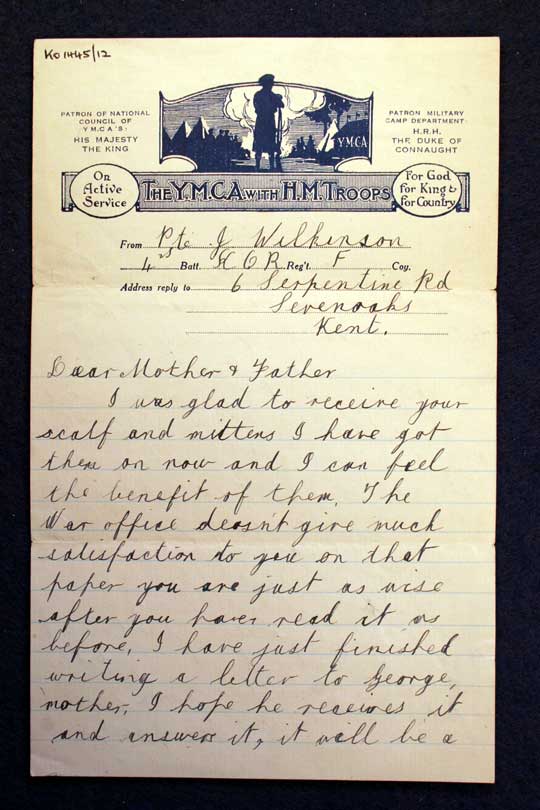 KO1445/12
PATRON OF NATIONAL
COUNCIL OF
Y M.C.A'S:
HIS MAJESTY
THE KING
YMCA
PATRON MILITARY
CAMP DEPARTMENT:
H.R.H.
THE DUKE OF
CONNAUGHT
On
Active
Service
THE Y.M.C.A WITH H.M. TROOPS
For God
for King &
for Country
From Pte J Wilkinson
4 Batt. R Reg't. F Coy.
Address reply to 6 Serpentine Rd
Sevenoaks
Kent.
Dear Mother & Father
I was glad to receive your
scalf and mittens I have got
them on now and I can feel
the benefit of them. The
War office deosn't give much
satisfaction to you on that
paper you are just as wise
after you have read it as
before, I have just finished
writing a letter to George,
mother, I hope he receives it
and answers it, it will be a